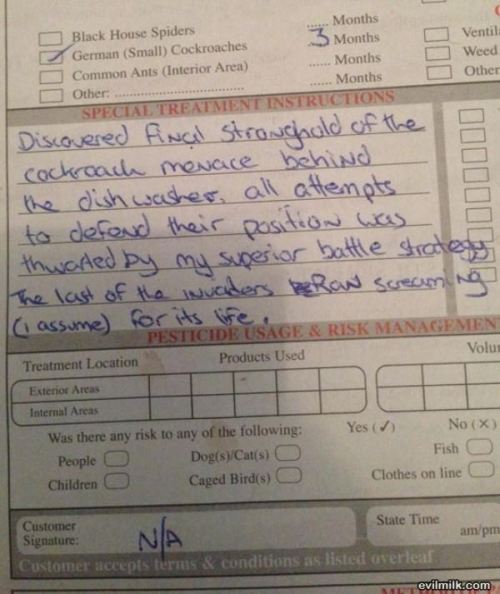 Black House Spiders ...... Months
German (Small) Cockroaches 3 Months Ventil
Common Ants (Interior Area) ...... Months Weed
Other: ................................ ...... Months Other
SPECIAL TREATMENT INSTRUCTIONS
Discovered final stronghold of the
cockroach menace behind
the dishwasher, all attempts
to defend their position was
thwarted by my superior battle strategy
The last of the invaders Ran screaming
(i assume) for its life.
PESTICIDE USAGE & RISK MANAGEMEN
Treatment Location Products Used Volu
Exterior Areas
Internal Areas
Was there any risk to any of the following: Yes (✓) No (×)
People Dog(s)/Cat(s) Fish
Children Caged Bird(s) Clothes on line
Customer
Signature: N/A State Time am/pm
Customer accepts terms & conditions as listed overleaf
evilmilk.com